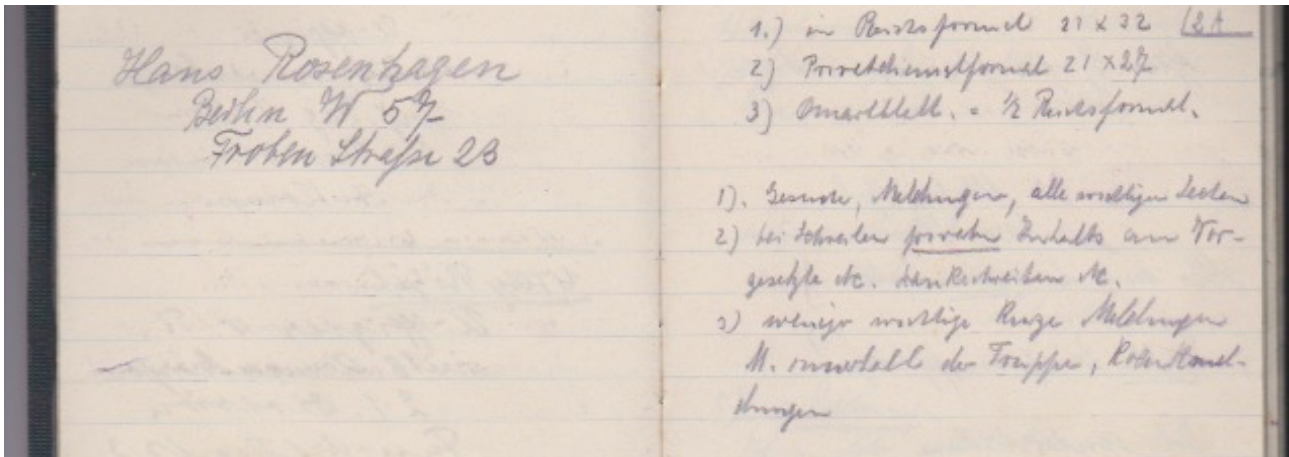 Hans Rosenhagen
Berlin W 57
Froben Straße 23
1.) in Reichsformat 21 x 32
2) Privatdienstformat 21 x 27
3) Quartblatt. = ½ Reichsformat.
1). Gesuche, Meldungen, alle wichtigen
2) bei Schreiben privaten Inhalts an Vor-
gesetzte etc. Dankschreiben etc.
3) wenige wichtige kurze Meldungen
M. innerhalb der Truppe,